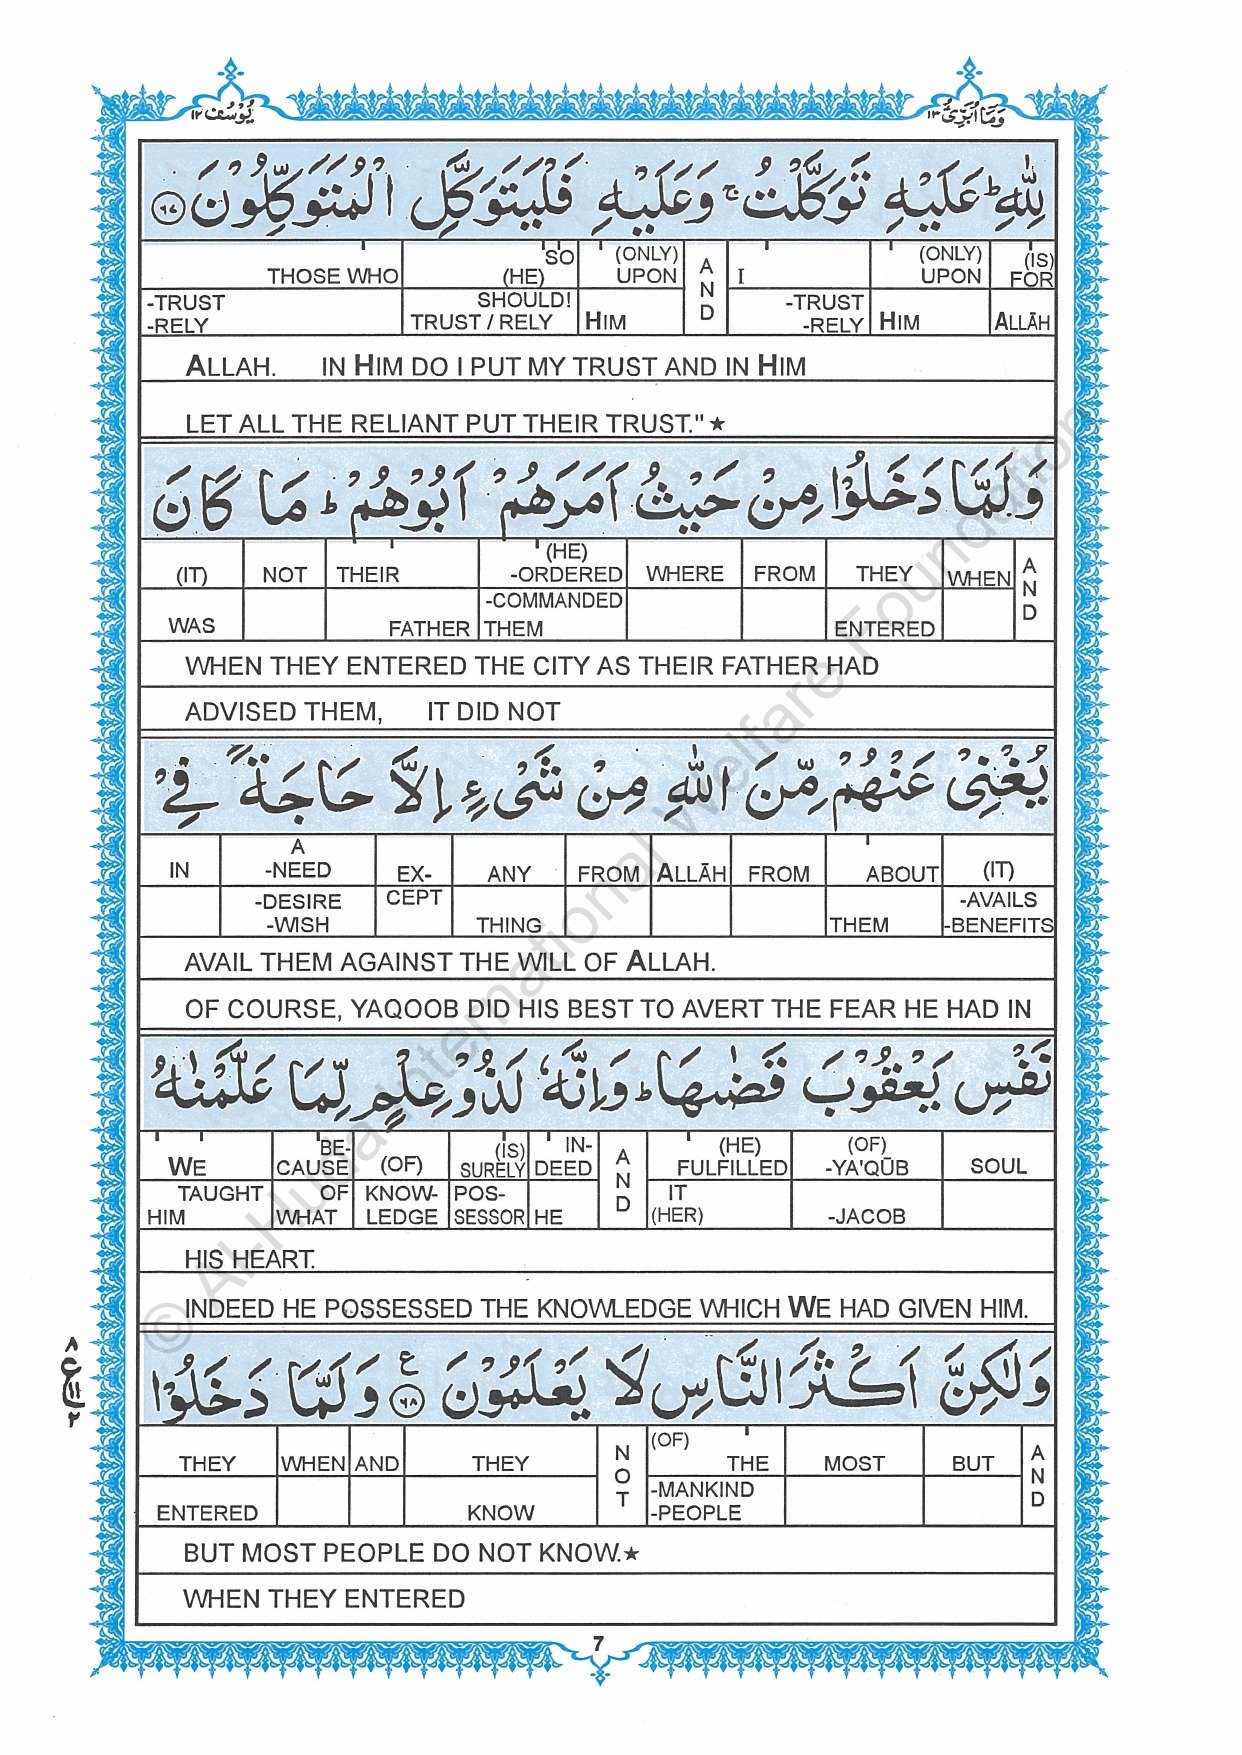 وَمَا اُبَرِّئُ ١٣
يُوْسُف ١٢
لِلّٰهِ ؕ عَلَيْهِ تَوَكَّلْتُ ۚ وَعَلَيْهِ فَلْيَتَوَكَّلِ الْمُتَوَكِّلُوْنَ ٦٧
THOSE WHO SO (HE) (ONLY) UPON AND I (ONLY) UPON (IS) FOR
-TRUST -RELY SHOULD! TRUST / RELY HIM -TRUST -RELY HIM ALLĀH
ALLAH. IN HIM DO I PUT MY TRUST AND IN HIM
LET ALL THE RELIANT PUT THEIR TRUST." ★
وَلَمَّا دَخَلُوْا مِنْ حَيْثُ اَمَرَهُمْ اَبُوْهُمْ ؕ مَا كَانَ
(IT) NOT THEIR (HE) -ORDERED WHERE FROM THEY WHEN AND
WAS FATHER -COMMANDED THEM ENTERED
WHEN THEY ENTERED THE CITY AS THEIR FATHER HAD
ADVISED THEM, IT DID NOT
يُغْنِيْ عَنْهُمْ مِّنَ اللّٰهِ مِنْ شَيْءٍ اِلَّا حَاجَةً فِيْ
IN A -NEED EX- ANY FROM ALLĀH FROM ABOUT (IT)
-DESIRE -WISH CEPT THING THEM -AVAILS -BENEFITS
AVAIL THEM AGAINST THE WILL OF ALLAH.
OF COURSE, YAQOOB DID HIS BEST TO AVERT THE FEAR HE HAD IN
نَفْسِ يَعْقُوْبَ قَضٰىهَا ؕ وَاِنَّهٗ لَذُوْ عِلْمٍ لِّمَا عَلَّمْنٰهُ
WE BE- CAUSE (OF) (IS) SURELY IN- DEED AND (HE) FULFILLED (OF) -YA'QŪB SOUL
TAUGHT HIM OF WHAT KNOW- LEDGE POS- SESSOR HE IT (HER) -JACOB
HIS HEART.
INDEED HE POSSESSED THE KNOWLEDGE WHICH WE HAD GIVEN HIM.
وَلٰكِنَّ اَكْثَرَ النَّاسِ لَا يَعْلَمُوْنَ ٦٨ ع وَلَمَّا دَخَلُوْا
THEY WHEN AND THEY NOT (OF) THE MOST BUT AND
ENTERED KNOW -MANKIND -PEOPLE
BUT MOST PEOPLE DO NOT KNOW.★
WHEN THEY ENTERED
٨
ع ١١
٢
7
© Al-Huda International Welfare Foundation